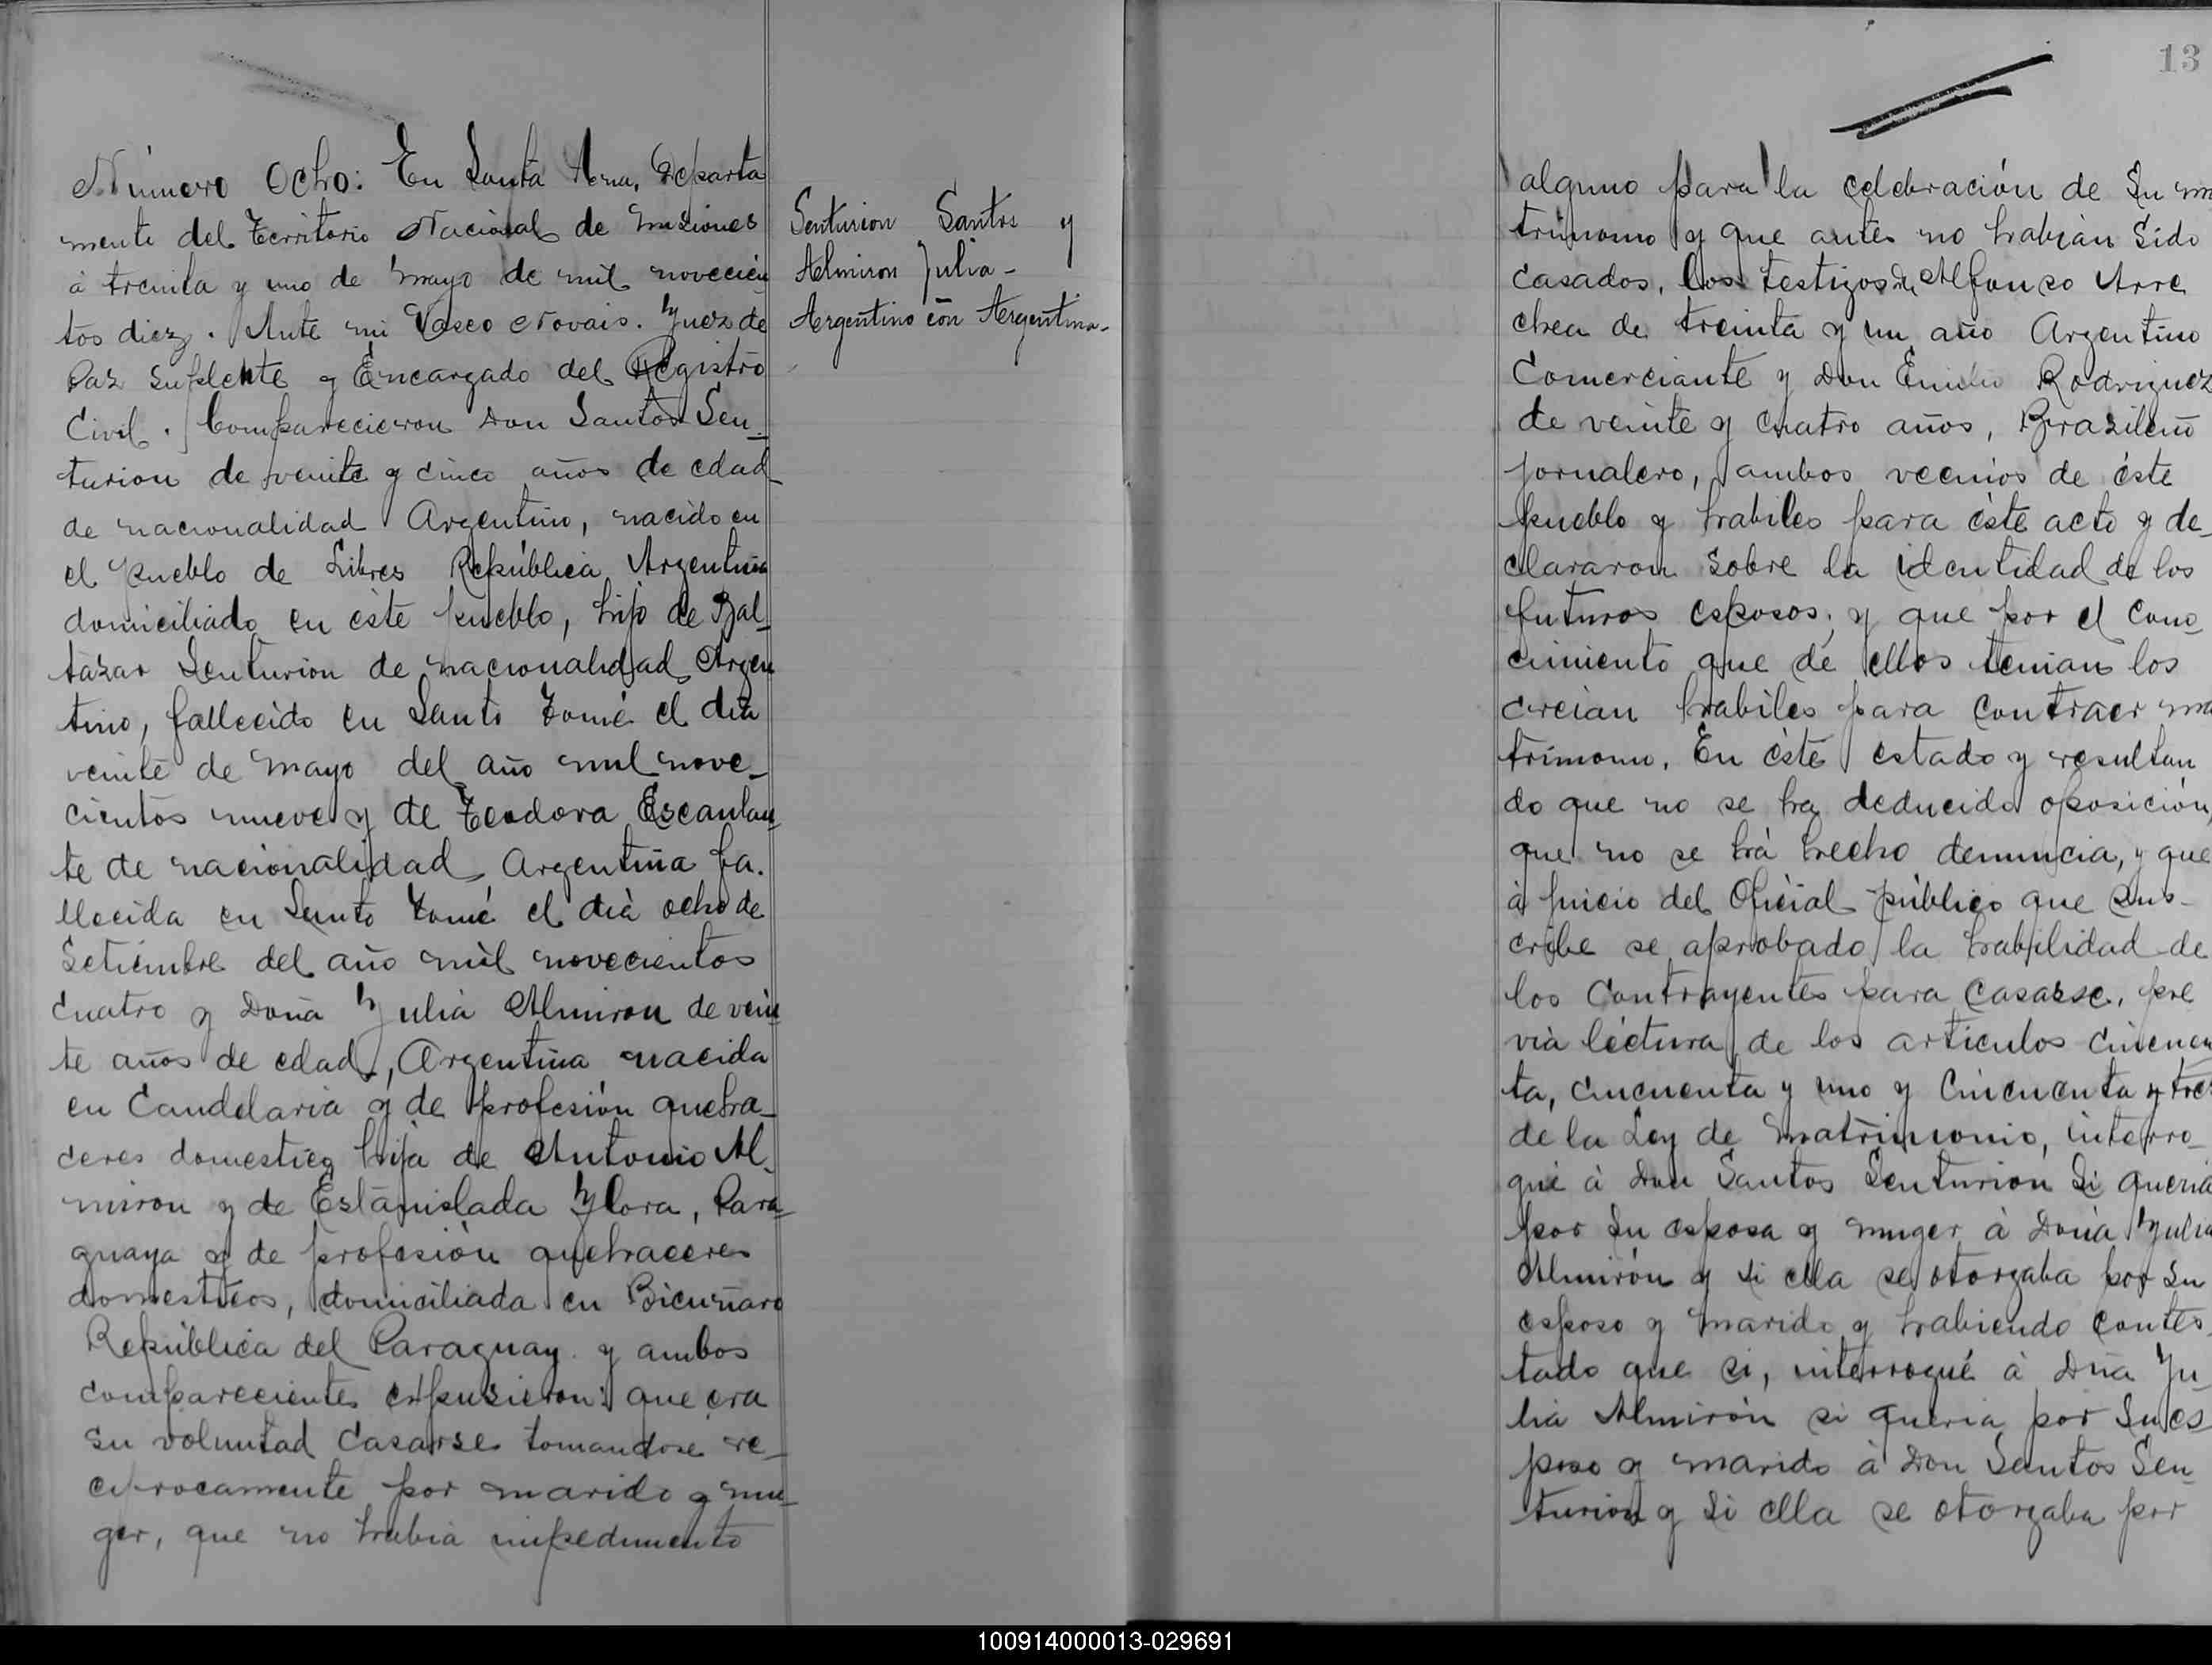 Número Ocho: En Santa Ana, Departa
mente del Territorio Nacional de Misiones
à treinta y uno de Mayo de mil novecien
tos diez. Ante mi Vasco Novais. Juez de
Paz Suplente y Encargado del Registro
Civil. Comparecieron Don Santos Sen_
turion de veinte y cinco años de edad
de nacionalidad Argentino, nacido en
el pueblo de Libres República Argentina
domiciliado en èste pueblo, hijo de Bal_
tazar Senturion de nacionalidad Argen
tino, fallecido en Santo Tomé el dia
veinte de Mayo del año mil nove_
cientos nueve y de Teodora Escantan
te de nacionalidad Argentina fa.
llecida en Santo Tomé el dià ocho de
Setiembre del año mil novecientos
cuatro y Doña Julia Almiron de vein
te años de edad, Argentina nacida
en Candelaria y de profesión queha_
ceres domestico hija de Antonio Al_
miron y de Estanislada Flora, Para_
guaya y de profesión quehaceres
domesticos, domiciliada en
República del Paraguay. y ambos
compareciente expusieron: que era
su voluntad casarse tomandose re_
ciprocamente por marido y mu_
ger, que no habia impedimento
Senturion Santos y
Almiron Julia -
Argentino con Argentina.
13
alguno para la celebración de Su ma
trimonio y que antes no habian Sido
casados, los testigos Dn Alfonso Arre
chea de treinta y un año Argentino
Comerciante y Don Emilio Rodriguez
de veinte y cuatro años, Brazileño
jornalero, ambos vecinos de éste
pueblo y habiles para éste acto y de_
clararon Sobre la identidad de los
futuros esposos; y que por el cono_
cimiento que de ellos tenian los
creian habiles para contraer ma
trimonio. En èste estado y resultan
do que no se ha deducido oposición,
que no se hà hecho denuncia, y que
à juicio del Oficial público que sus_
cribe se aprobado la habilidad de
los Contrayentes para casarse, pre
via léctura de los articulos cincuen
ta, cincuenta y uno y Cincuenta y tres
de la Ley de Matrimonio, interro_
gué à Don Santos Senturion Si queria
por Su esposa y muger à Doña Julia
Almirón y si ella se otorgaba por su
esposo y marido y habiendo contes_
tado que si, interrogué à Dña Ju_
lia Almirón si queria por Su es
poso y marido à Don Santos Sen_
turion y Si ella se otorgaba por
100914000013-029691